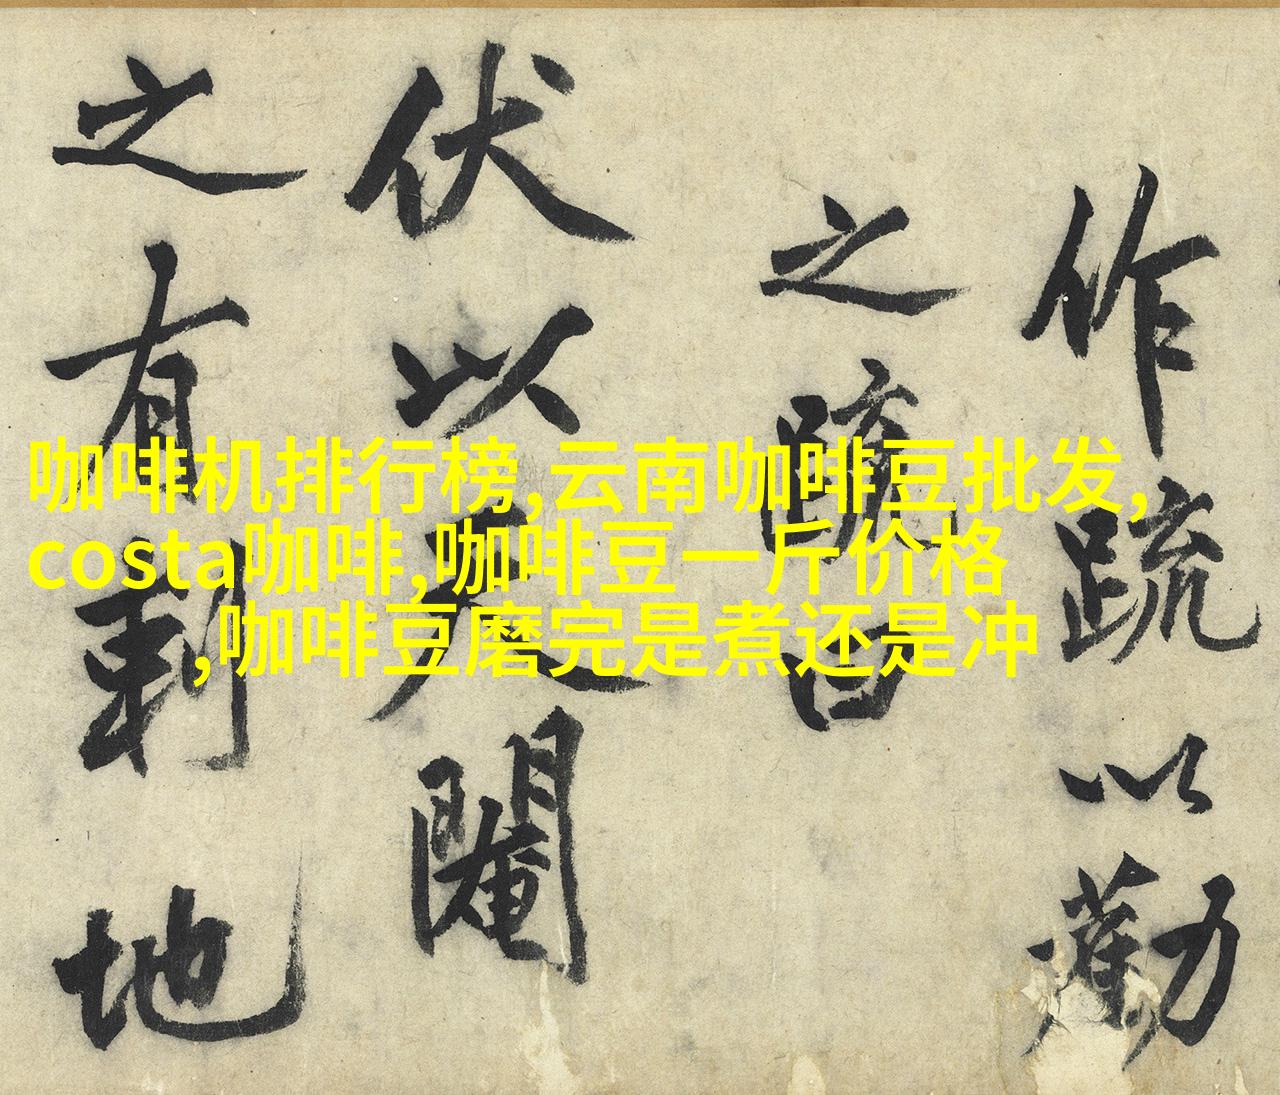 作疏以勸
之疏曰
伏以天閹
之有剩地
咖啡机排行榜,云南咖啡豆批发,
costa咖啡,咖啡豆一斤价格
,咖啡豆磨完是煮还是冲